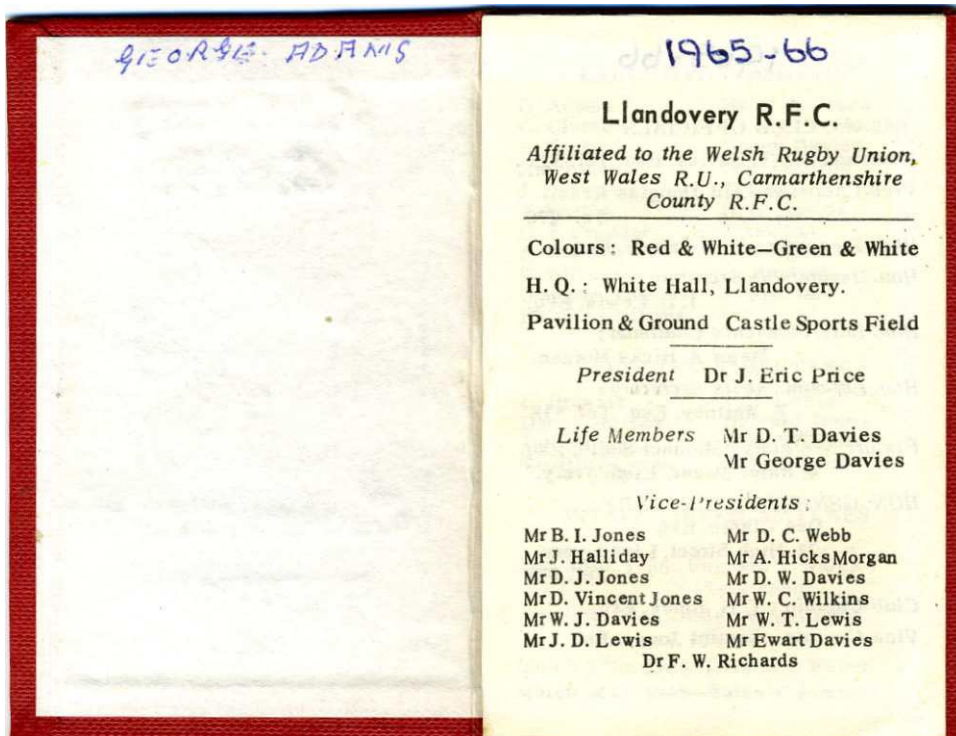 GEORGE ADAMS
1965-66
Llandovery R.F.C.
Affiliated to the Welsh Rugby Union,
West Wales R.U., Carmarthenshire
County R.F.C.
Colours: Red & White—Green & White
H.Q.: White Hall, Llandovery.
Pavilion & Ground Castle Sports Field
President Dr J. Eric Price
Life Members Mr D. T. Davies
Mr George Davies
Vice-Presidents:
Mr B. I. Jones Mr D. C. Webb
Mr J. Halliday Mr A. Hicks Morgan
Mr D. J. Jones Mr D. W. Davies
Mr D. Vincent Jones Mr W. C. Wilkins
Mr W. J. Davies Mr W. T. Lewis
Mr J. D. Lewis Mr Ewart Davies
Dr F. W. Richards